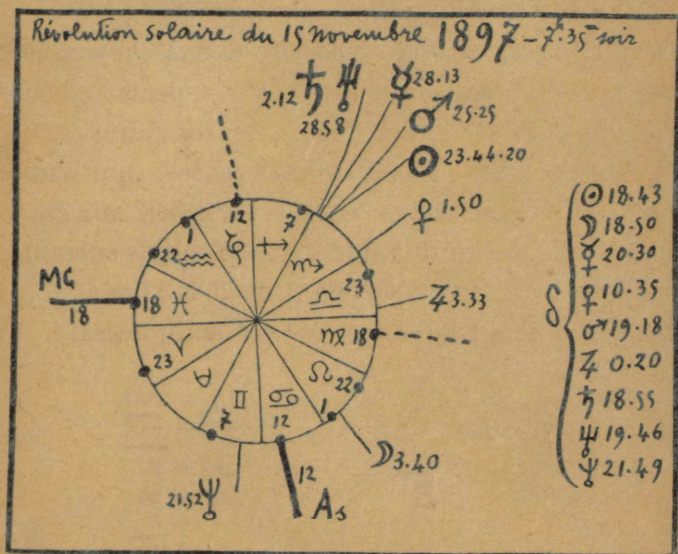 Révolution solaire du 15 novembre 1897 - 7h.35 soir
2.12 ♄ ♅ ☿ 28.13
28.58
♂ 25.25
☉ 23.44.20
♀ 1.50
♃ 3.33
☽ 3.40
21.52 ♆
12 As
MC
18
12
7
1
22
18
23
7
12
1
22
18
23
♑
♐
♏
♎
♍
♌
♋
♊
♉
♈
♓
♒
δ
☉ 18.43
☽ 18.50
☿ 20.30
♀ 10.35
♂ 19.18
♃ 0.20
♄ 18.55
♅ 19.46
♆ 21.49